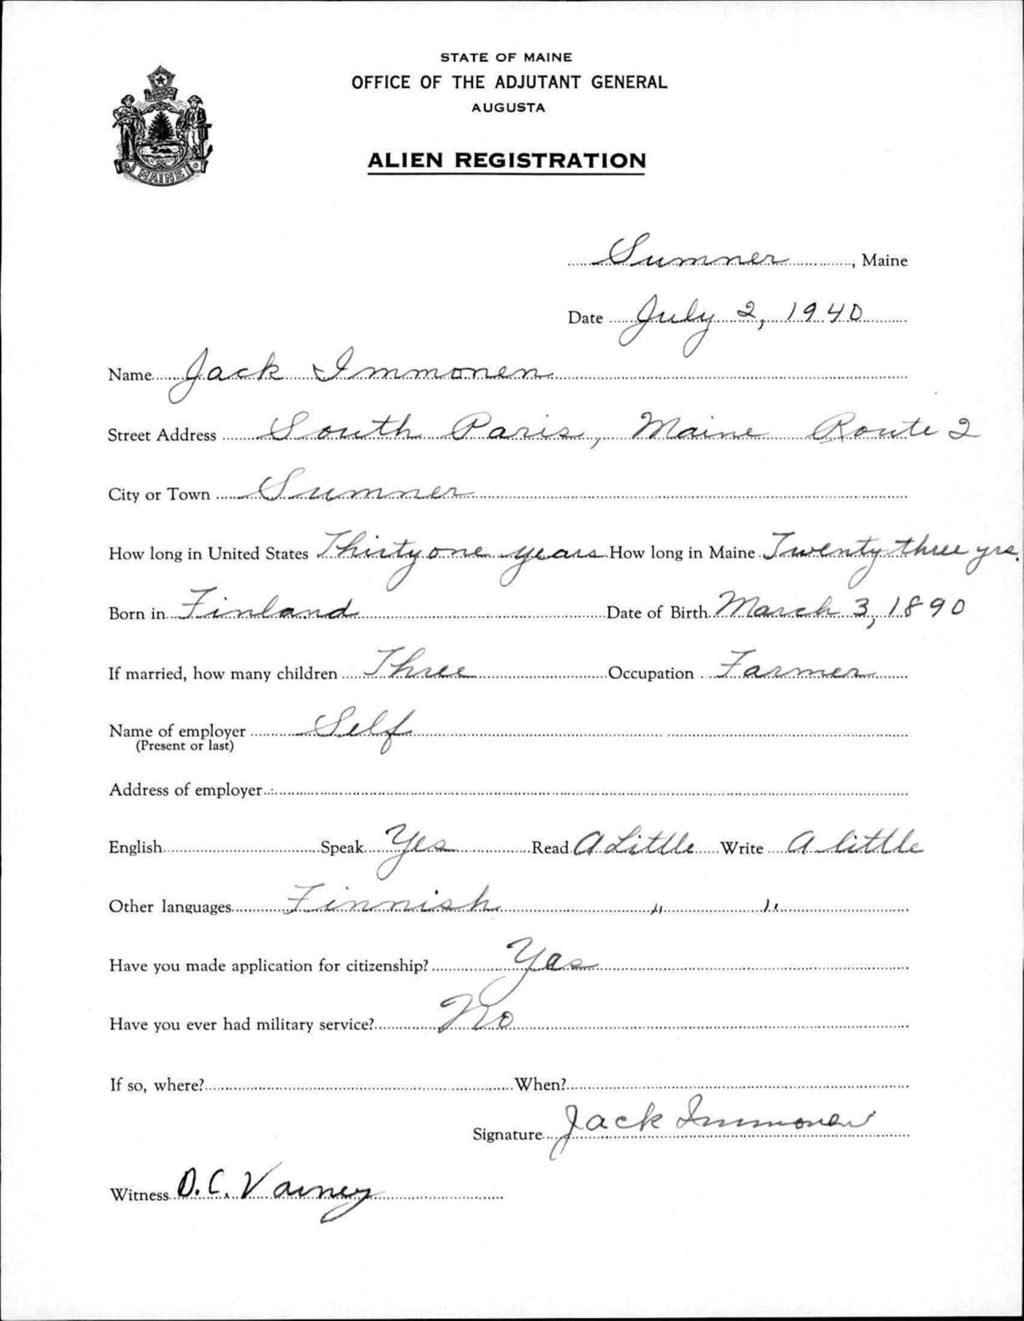 STATE OF MAINE
OFFICE OF THE ADJUTANT GENERAL
AUGUSTA
ALIEN REGISTRATION
MAINE
Sumner, Maine
Date July 2, 1940
Name Jack Immonen
Street Address South Paris, Maine Route 2
City or Town Sumner
How long in United States Thirty one years How long in Maine Twenty three yrs.
Born in Finland Date of Birth March 3, 1890
If married, how many children Three Occupation Farmer
Name of employer Self
(Present or last)
Address of employer
English Speak Yes Read A Little Write A little
Other languages Finnish " "
Have you made application for citizenship? Yes
Have you ever had military service? No
If so, where? When?
Signature Jack Immonen
Witness O. C. Varney